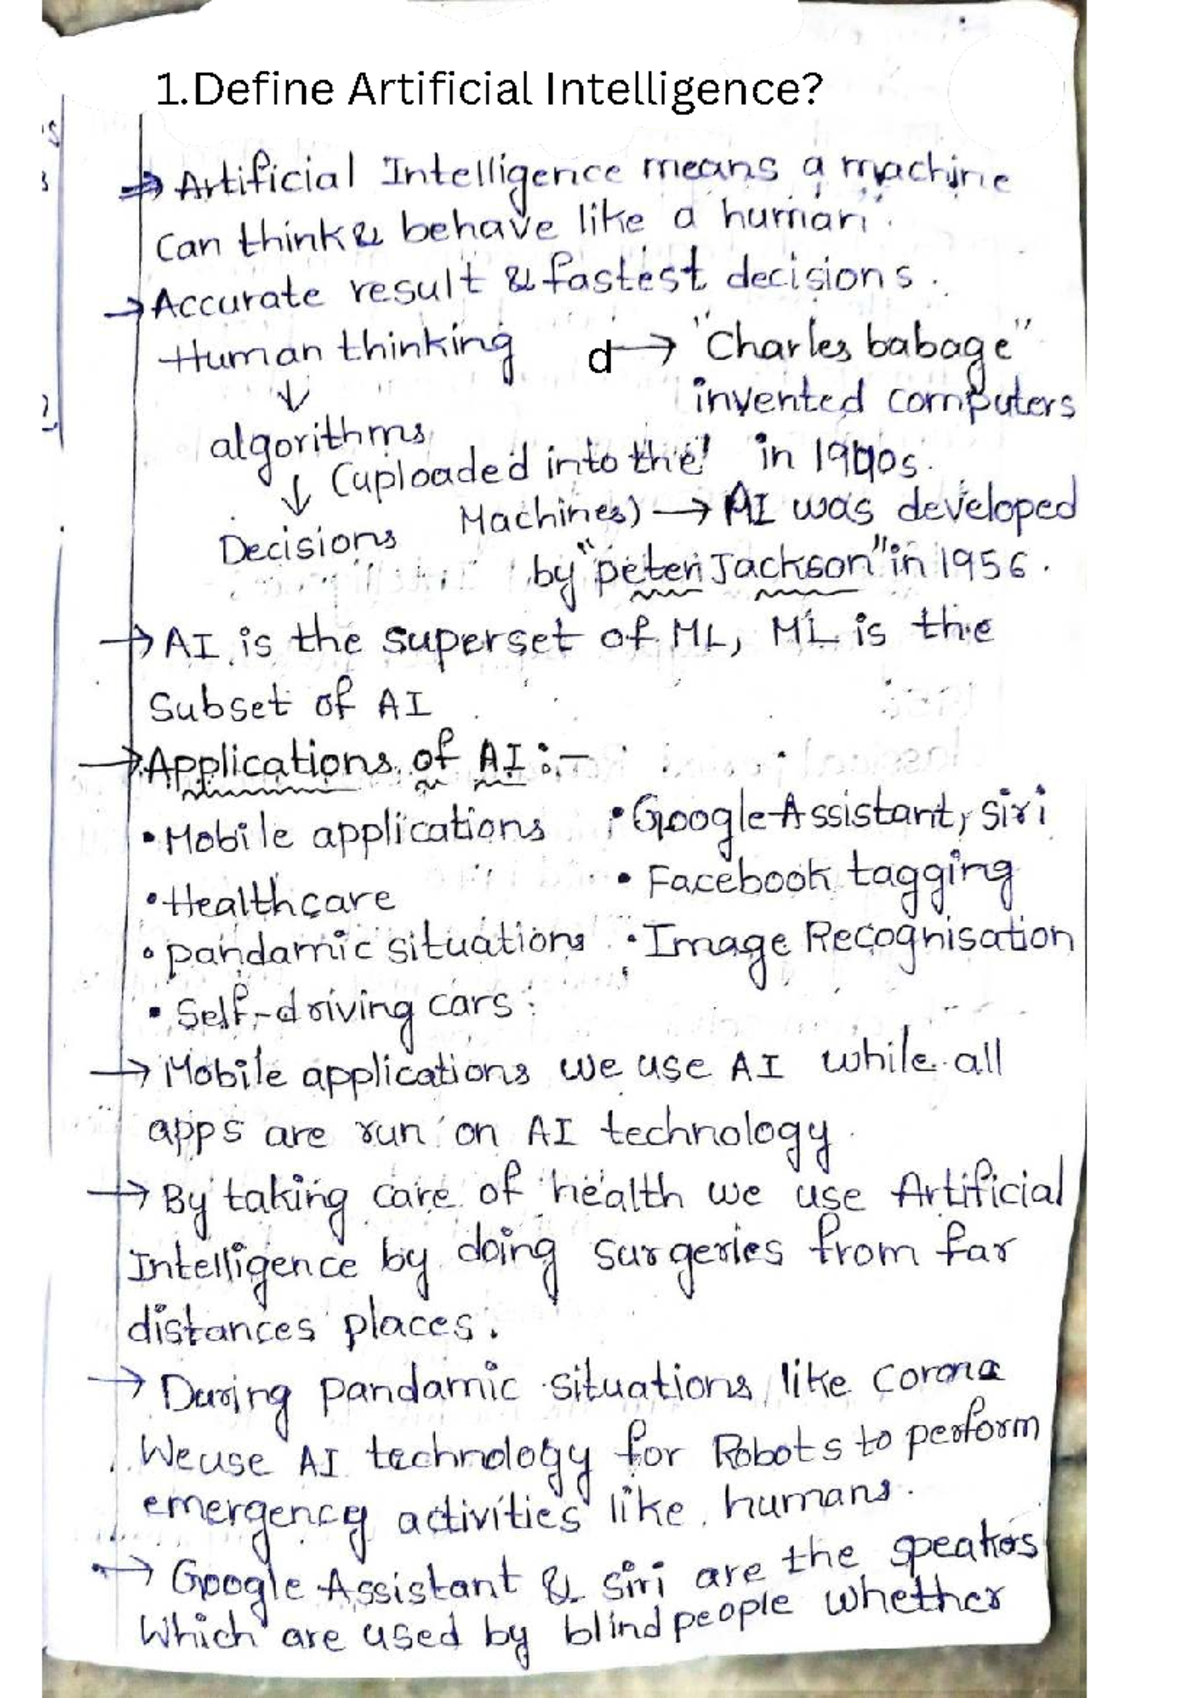 1.Define Artificial Intelligence?
→ Artificial Intelligence means a machine
can think & behave like a human.
→ Accurate result & fastest decisions.
Human thinking d → "Charles babage"
↓ invented computers
algorithms in 1940s.
↓ (uploaded into the
Decisions Machines) → AI was developed
by "peter Jackson" in 1956.
→ AI is the superset of ML, ML is the
Subset of AI
→ Applications of AI :-
• Mobile applications • Google Assistant, siri
• Healthcare • Facebook tagging
• pandamic situations • Image Recognisation
• Self-driving cars
→ Mobile applications we use AI while all
apps are run on AI technology.
→ By taking care of health we use Artificial
Intelligence by doing surgeries from far
distances places.
→ During pandamic situations like corona
We use AI technology for Robots to perform
emergency activities like humans.
→ Google Assistant & siri are the speakers
Which are used by blind people whether